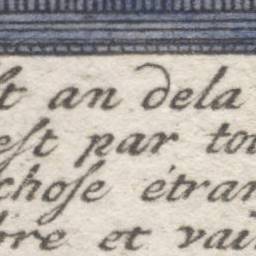 st an dela
est par tou
chose étran
bre et vain